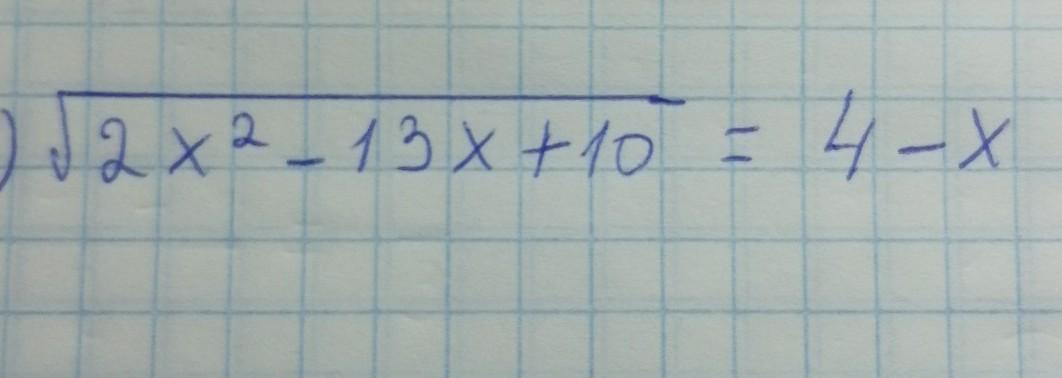 ) √2x² - 13x + 10 = 4 - x